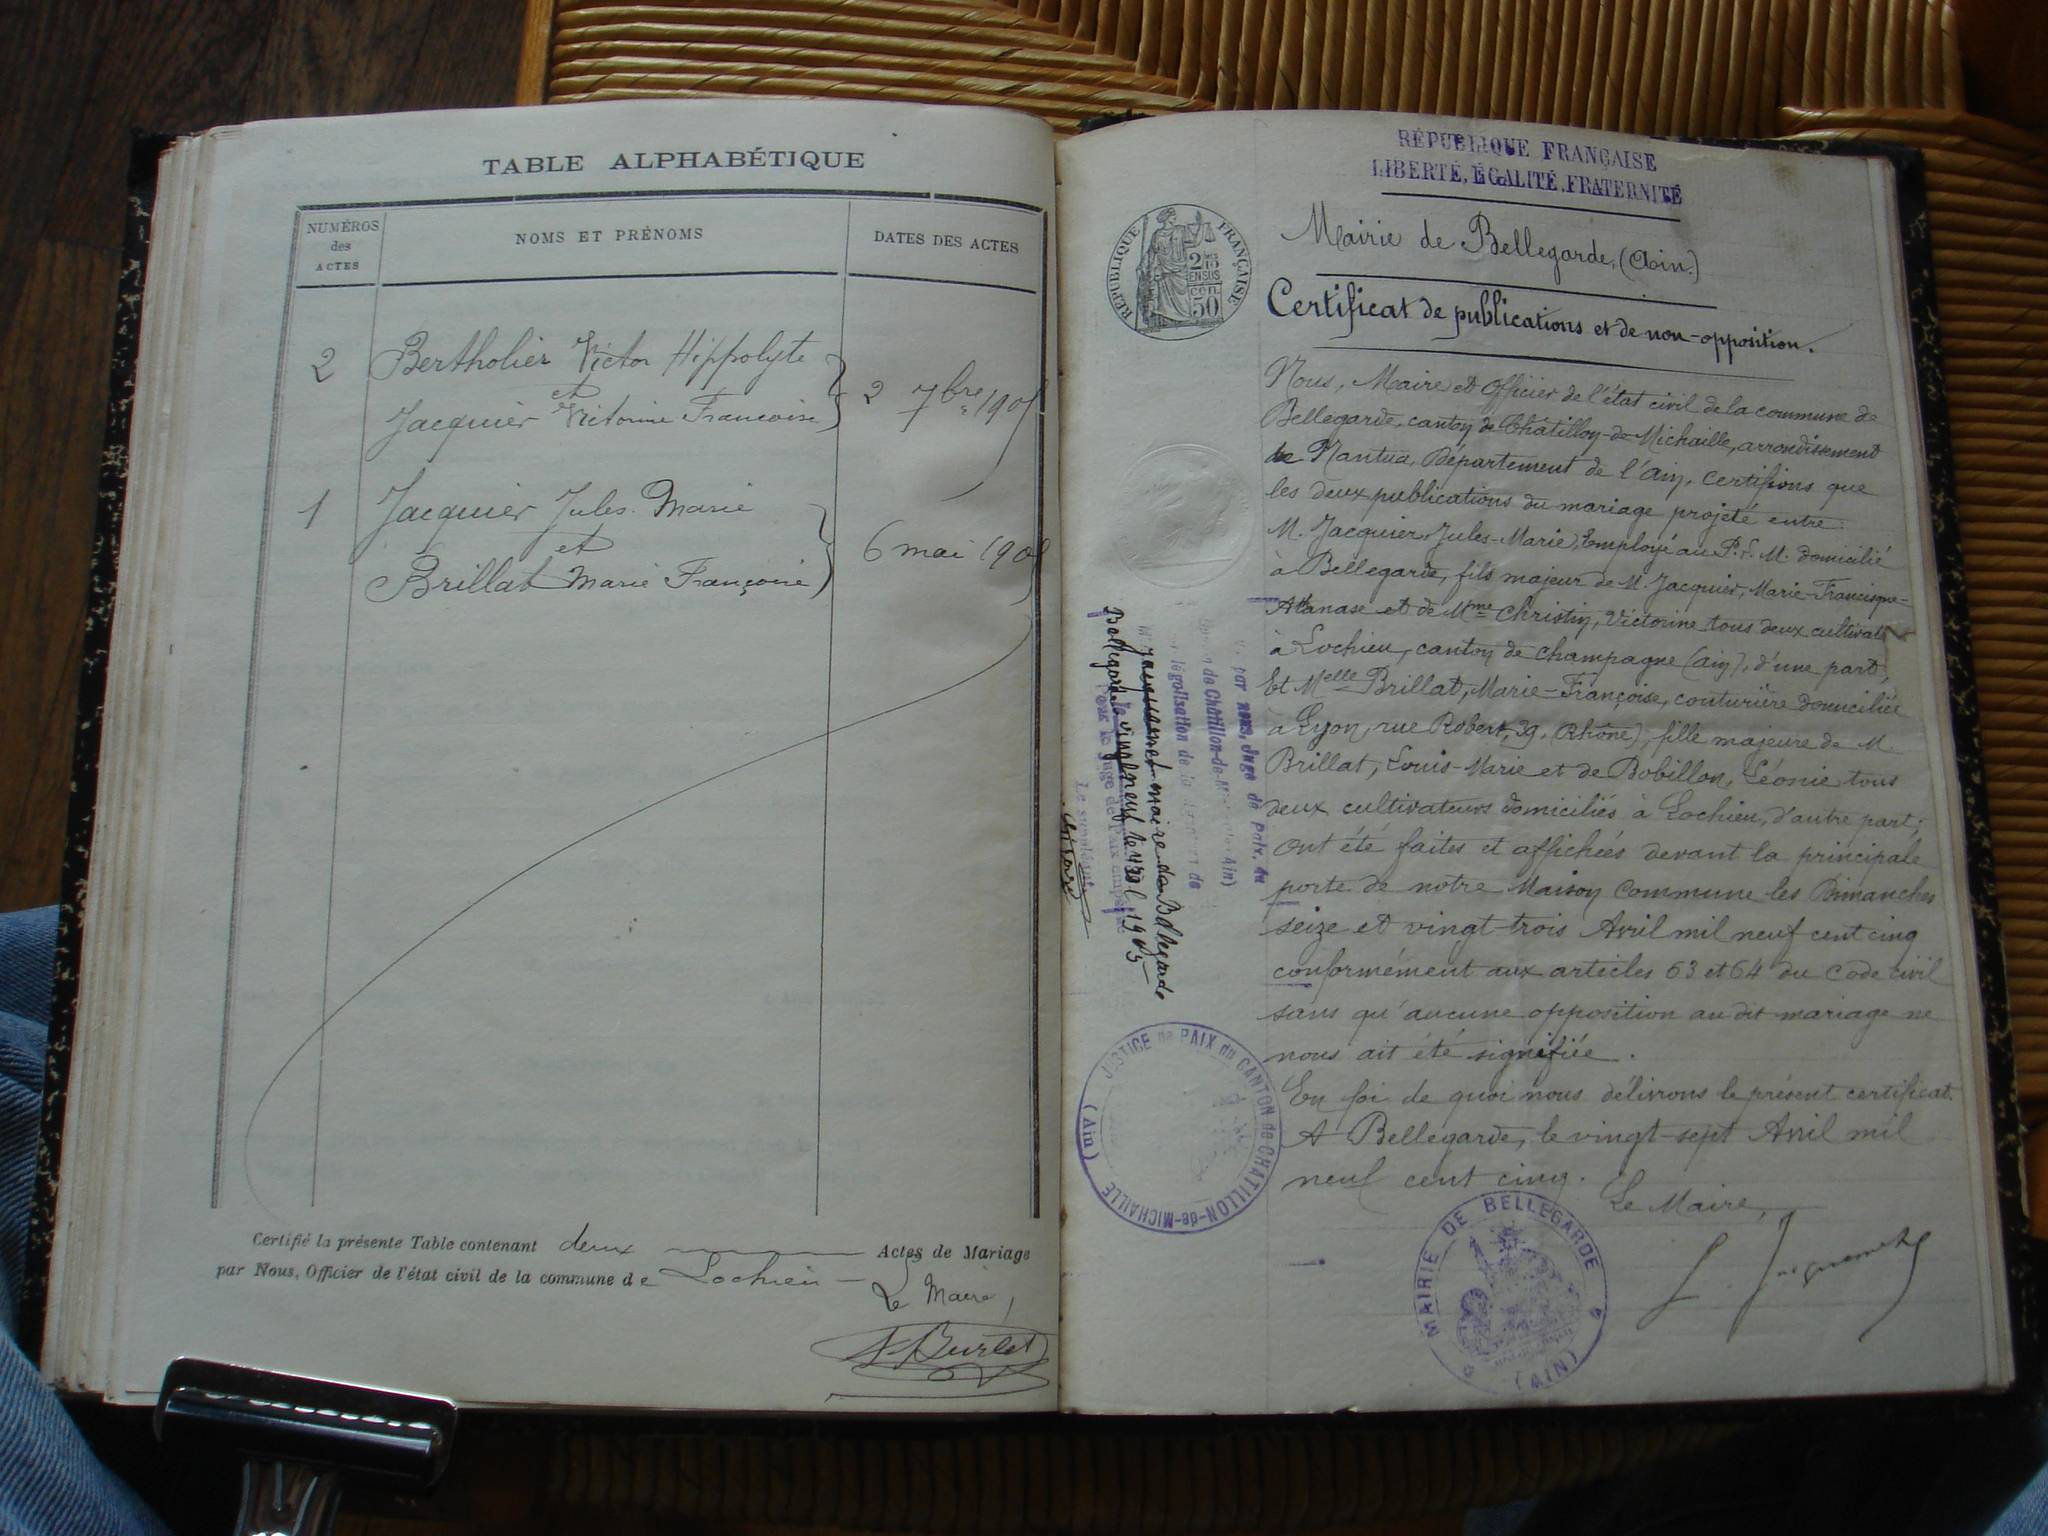 TABLE ALPHABÉTIQUE
NUMÉROS
des
ACTES
NOMS ET PRÉNOMS
DATES DES ACTES
2 Bertholier Victor Hippolyte
et
Jacquier Victorine Françoise
2 7bre 1905
1 Jacquier Jules Marie
et
Brillat Marie Françoise
6 mai 1905
Certifié la présente Table contenant deux Actes de Mariage
par Nous, Officier de l'état civil de la commune de Lochieu
Le Maire,
Burlet
RÉPUBLIQUE FRANÇAISE
LIBERTÉ, ÉGALITÉ, FRATERNITÉ
RÉPUBLIQUE FRANÇAISE
2/10
EN SUS
50 cen
Mairie de Bellegarde, (Ain.)
Certificat de publications et de non-opposition.
Nous, Maire et Officier de l'état civil de la commune de
Bellegarde, canton de Châtillon-de-Michaille, arrondissement
de Nantua, Département de l'Ain, certifions que
les deux publications du mariage projeté entre:
M. Jacquier, Jules-Marie, Employé au P.L.M. domicilié
à Bellegarde, fils majeur de M. Jacquier, Marie-Francisque-
Athanase et de Mme Christin, Victorine tous deux cultivat
à Lochieu, canton de Champagne (ain), d'une part,
Et Melle Brillat, Marie-Françoise, couturière domiciliée
à Lyon, rue Robert, 39, (Rhône), fille majeure de M.
Brillat, Louis-Marie et de Bobillon, Léonie tous
deux cultivateurs domiciliés à Lochieu, d'autre part;
ont été faites et affichées devant la principale
porte de notre Maison Commune les Dimanches
seize et vingt-trois Avril mil neuf cent cinq
conformément aux articles 63 et 64 du Code civil
sans qu'aucune opposition au dit mariage ne
nous ait été signifiée.
En foi de quoi nous délivrons le présent certificat.
A Bellegarde, le vingt-sept Avril mil
neuf cent cinq.
Le Maire,
MAIRIE DE BELLEGARDE
(AIN)
par nous, Juge de paix du
de Châtillon-de- Ain)
légalisation de la
maire de Bellegarde
Bellegarde le vingt neuf avril 1905
Pour le Juge de Paix empêché
Le suppléant
JUSTICE de PAIX du CANTON de CHATILLON-de-MICHAILLE
(Ain)